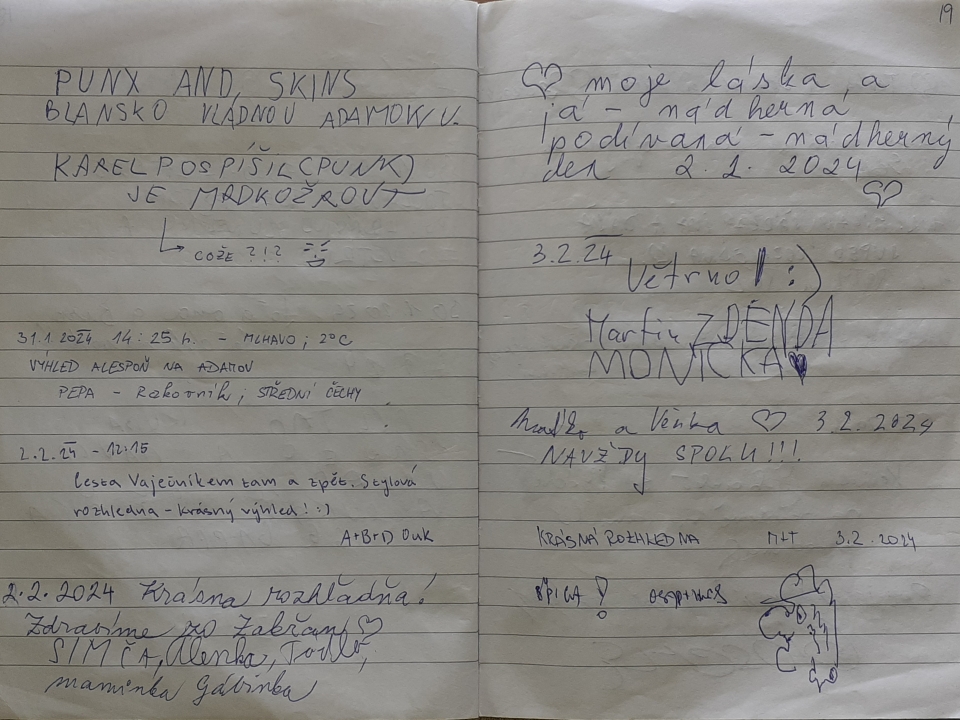 PUNX AND SKINS
BLANSKO VLÁDNOU ADAMOWU.
KAREL POSPÍŠIL (PUNK)
JE MADKOŽROUT
COŽE ?!?
31.1.2024 14:25 h. - MLHAVO; 2°C
VÝHLED ALESPOŇ NA ADAMOV
PEPA - Rakovník; STŘEDNÍ ČECHY
2.2.24 - 12:15
Cesta Vaječníkem tam a zpět. Stylová
rozhledna - krásný výhled! :)
A+B+D
2.2.2024 Krásna rozhľadňa!
Zdravíme zo
SIMČA, Alenka,
maminka Gábinka
19
moje láska a
já - nádherná
podívaná - nádherný
den 2.2.2024
3.2.24
Větrno! :)
Martin ZDENDA
MONIČKA
a Věnka 3.2.2024
NAVŽDY SPOLU!!!
KRÁSNÁ ROZHLEDNA M+T 3.2.2024
ŠPICA!